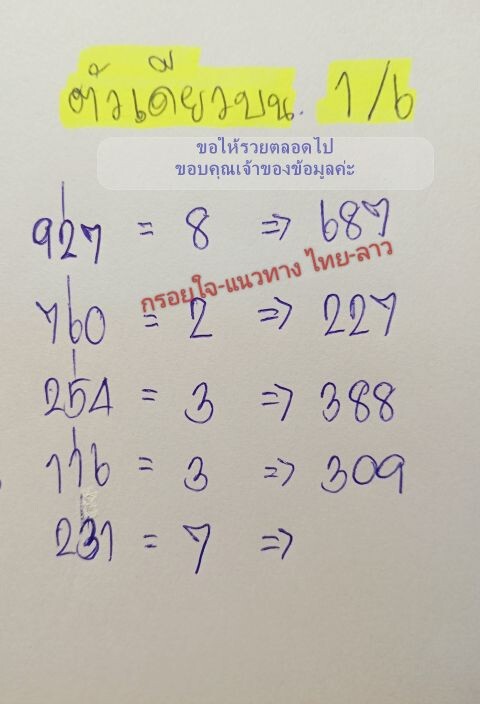 ตัวเดียวบน. 1/6
ขอให้รวยตลอดไป
ขอบคุณเจ้าของข้อมูลค่ะ
927 = 8 => 687
กรอยใจ-แนวทาง ไทย-ลาว
760 = 2 => 227
254 = 3 => 388
116 = 3 => 309
231 = 7 =>